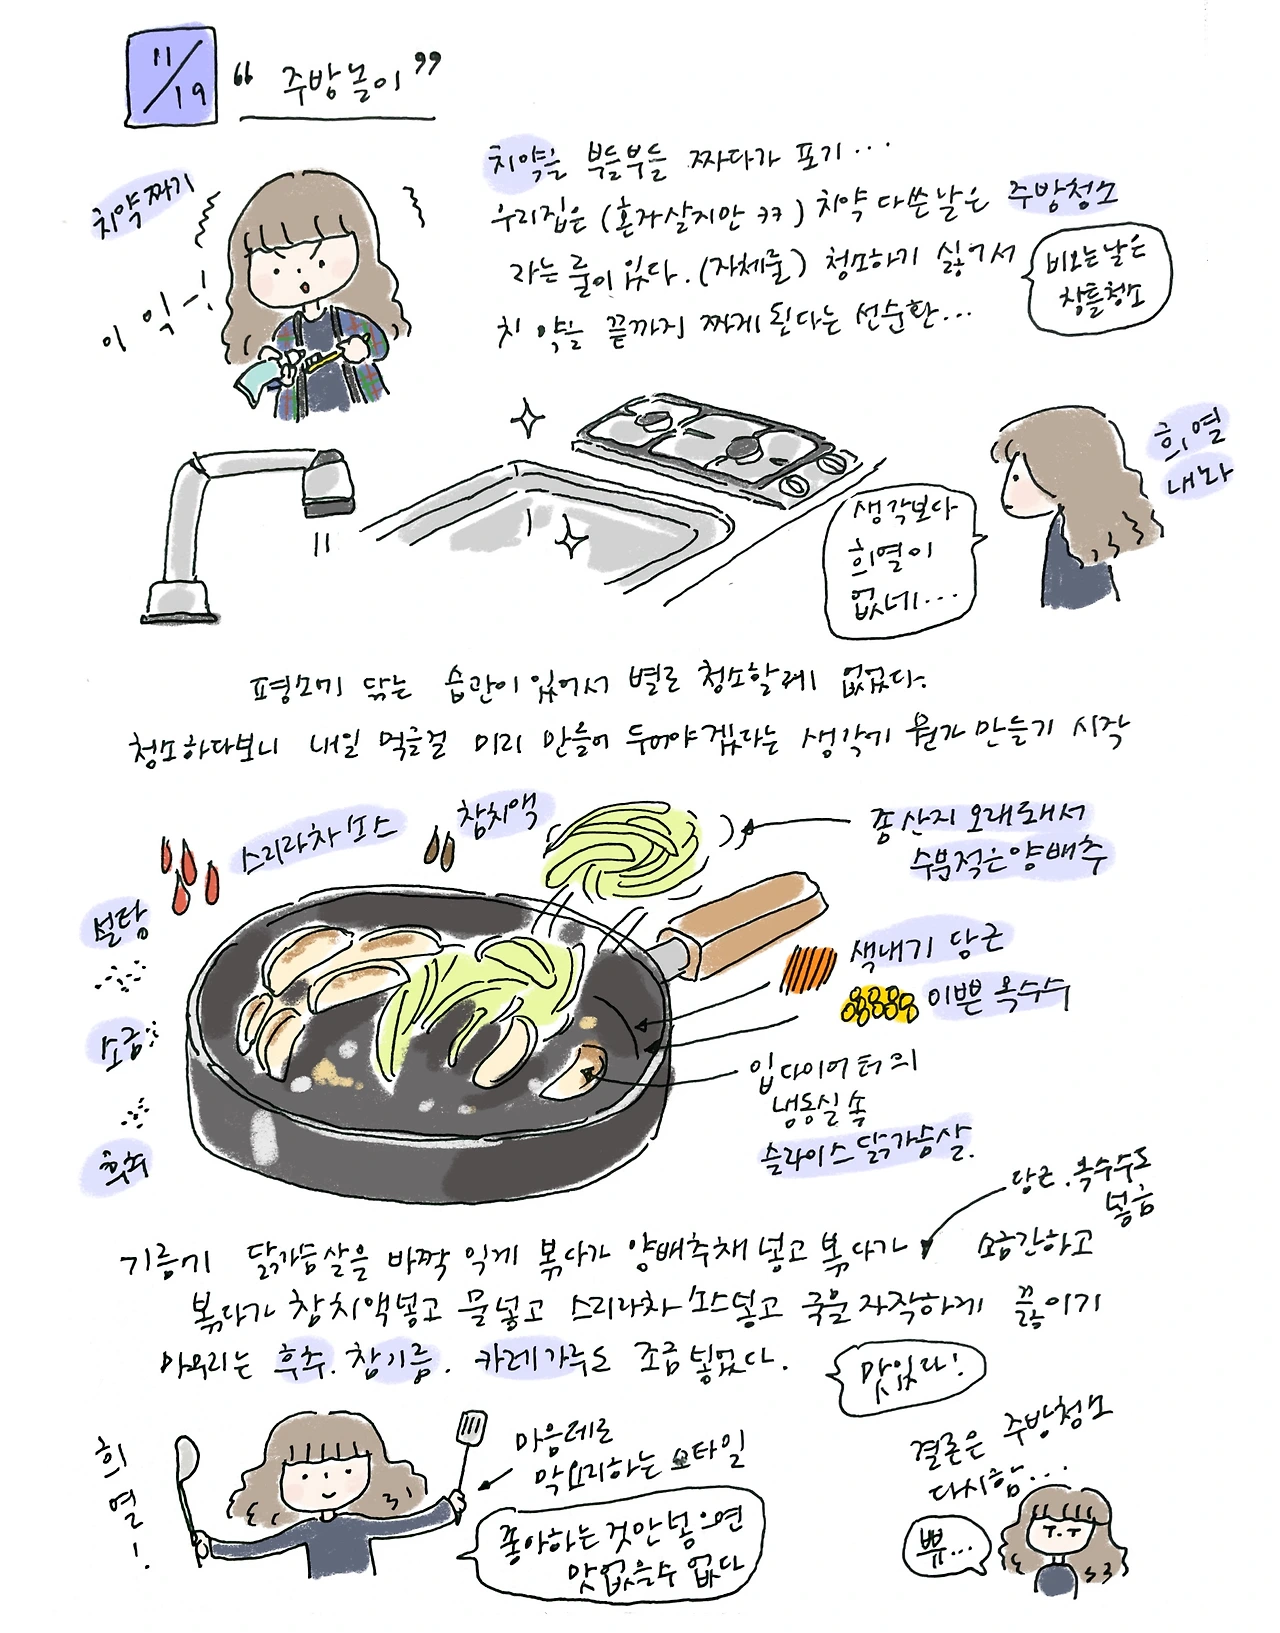 11/19 “주방놀이”
치약짜기
이익~!
치약을 부들부들 짜다가 포기...
우리집은 (혼자살지만 ㅋㅋ) 치약 다쓴날은 주방청소
라는 룰이 있다. (자체룰) 청소하기 싫어서
치약을 끝까지 짜게 된다는 선순환...
비오는날은
창틀청소
희열
내놔
생각보다
희열이
없네...
평소에 닦는 습관이 있어서 별로 청소할게 없었다.
청소하다보니 내일 먹을걸 미리 만들어 두어야겠다는 생각에 뭔가 만들기 시작
스리라차 소스
참치액
종산지 오래돼서
수분적은양배추
설탕
소금
후추
색내기 당근
이쁜 옥수수
입다이어터의
냉동실 속
슬라이스닭가슴살.
당근.옥수수도
넣음
기름에 닭가슴살을 바짝 익게 볶다가 양배추채 넣고 볶다가 소금간하고
볶다가 참치액넣고 물넣고 스리라차 소스넣고 국물 자작하게 끓이기
마무리는 후추. 참기름. 카레가루도 조금 넣었다.
맛있다!
희열!
마음대로
막요리하는 스타일
좋아하는 것만 넣으면
맛없을수 없다
결론은 주방청소
다시함...
쀼...